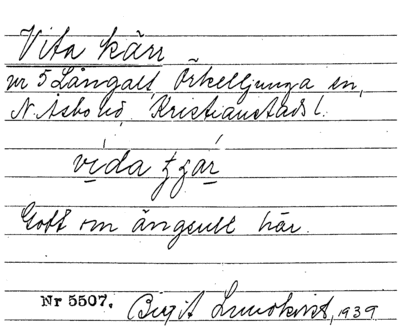 Vita kärr
nr 5 Långalt Örkelljunga sn,
N. Åsbo hd, Kristianstads l.
vída
Gott om ängsull här.
Nr 5507. Birgit Lundkvist, 1939